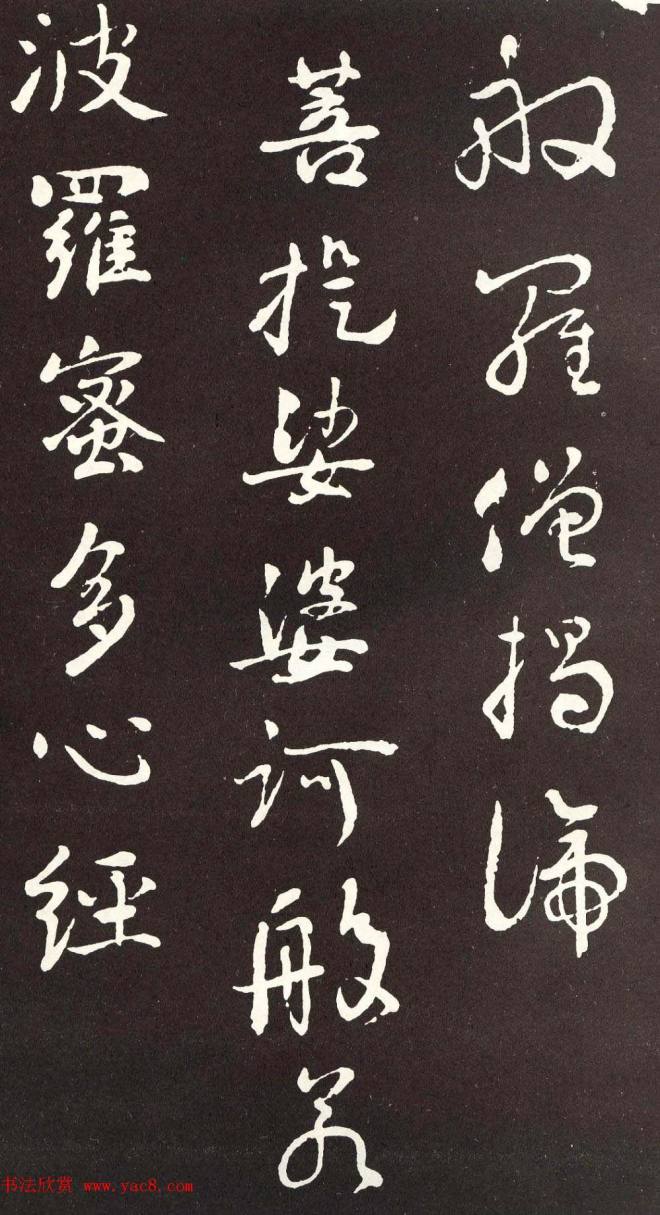 般羅僧揭諦
菩提娑婆訶般若
波羅蜜多心經
书法欣赏 www.yac8.com